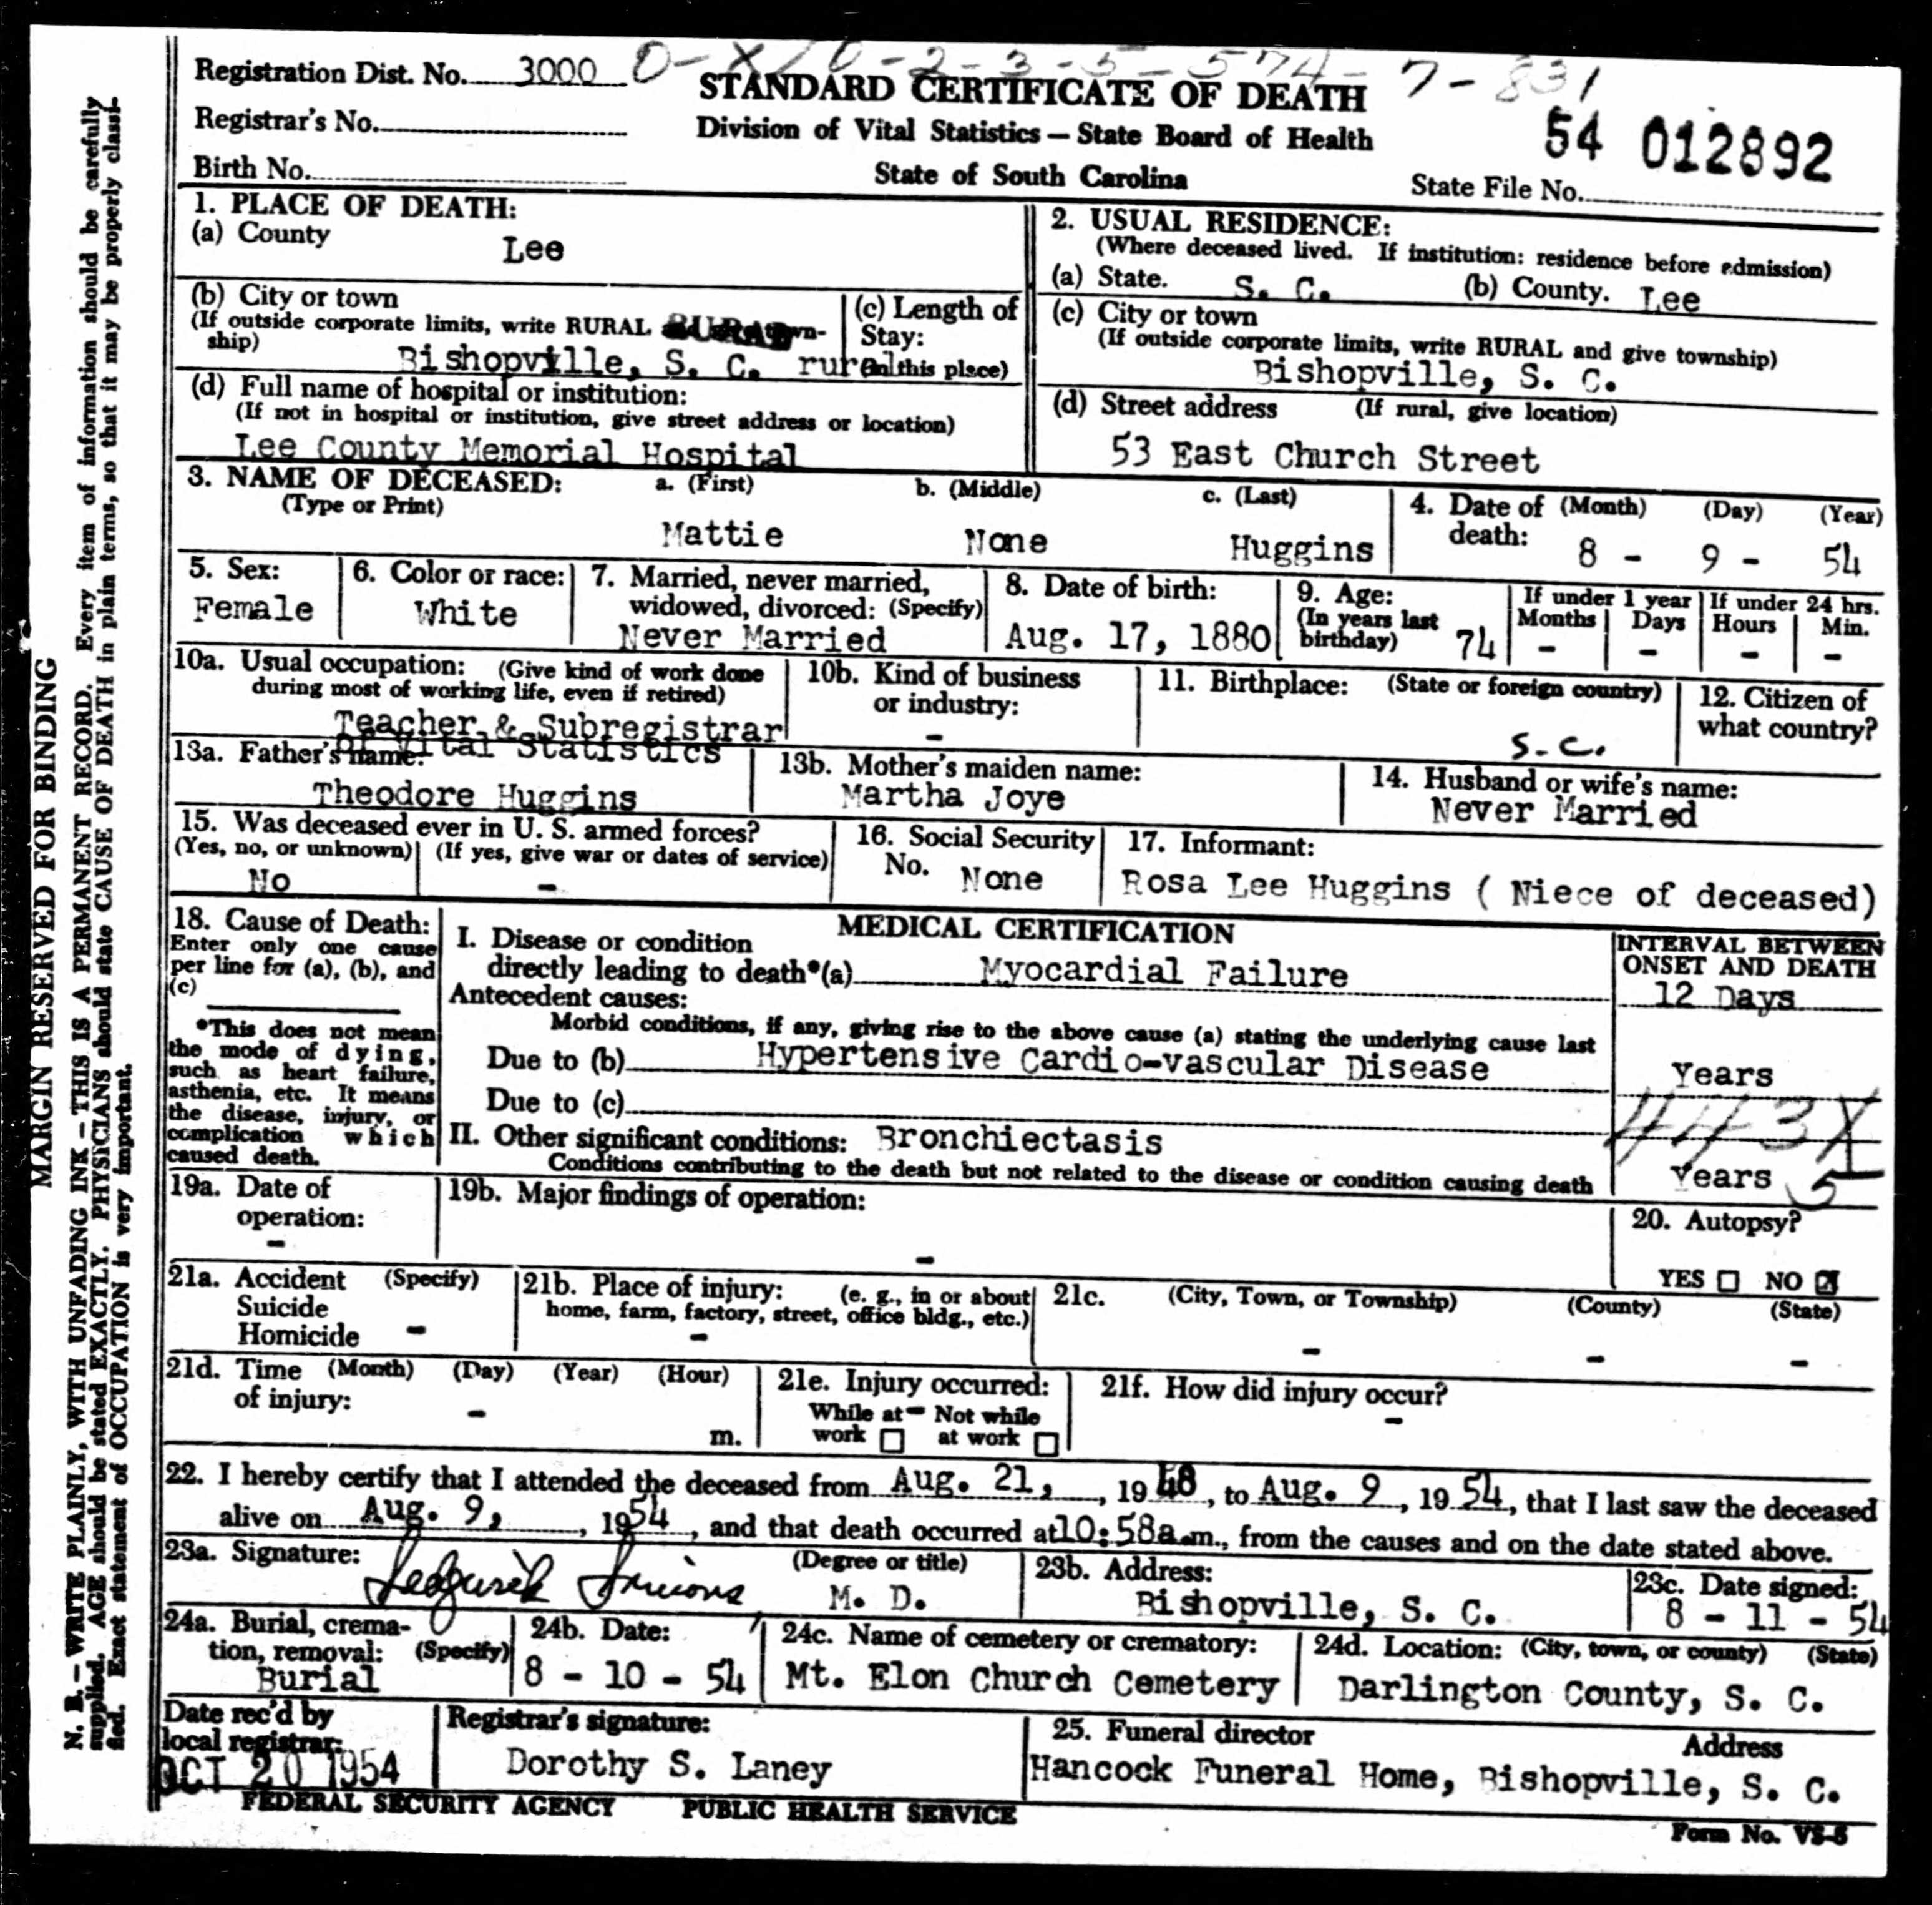 Registration Dist. No. 3000 0-X/0-2-3-5-574-7-831
STANDARD CERTIFICATE OF DEATH
Registrar's No.
Division of Vital Statistics — State Board of Health
54 012892
Birth No.
State of South Carolina
State File No.
1. PLACE OF DEATH:
(a) County
Lee
2. USUAL RESIDENCE:
(Where deceased lived. If institution: residence before admission)
(a) State. S. C. (b) County. Lee
(b) City or town
(If outside corporate limits, write RURAL
ship)
Bishopville, S. C. rural
(c) Length of
Stay:
(in this place)
(c) City or town
(If outside corporate limits, write RURAL and give township)
Bishopville, S. C.
(d) Full name of hospital or institution:
(If not in hospital or institution, give street address or location)
Lee County Memorial Hospital
(d) Street address (If rural, give location)
53 East Church Street
3. NAME OF DECEASED: a. (First) b. (Middle) c. (Last)
(Type or Print)
Mattie None Huggins
4. Date of (Month) (Day) (Year)
death: 8 - 9 - 54
5. Sex:
Female
6. Color or race:
White
7. Married, never married,
widowed, divorced: (Specify)
Never Married
8. Date of birth:
Aug. 17, 1880
9. Age:
(In years last
birthday) 74
If under 1 year
Months Days
- -
If under 24 hrs.
Hours Min.
- -
10a. Usual occupation: (Give kind of work done
during most of working life, even if retired)
Teacher & Subregistrar
of Vital Statistics
10b. Kind of business
or industry:
-
11. Birthplace: (State or foreign country)
S.C.
12. Citizen of
what country?
13a. Father's name:
Theodore Huggins
13b. Mother's maiden name:
Martha Joye
14. Husband or wife's name:
Never Married
15. Was deceased ever in U. S. armed forces?
(Yes, no, or unknown) (If yes, give war or dates of service)
No -
16. Social Security
No. None
17. Informant:
Rosa Lee Huggins ( Niece of deceased)
18. Cause of Death:
Enter only one cause
per line for (a), (b), and
(c)
*This does not mean
the mode of dying,
such as heart failure,
asthenia, etc. It means
the disease, injury, or
complication which
caused death.
MEDICAL CERTIFICATION
I. Disease or condition
directly leading to death*(a) Myocardial Failure
Antecedent causes:
Morbid conditions, if any, giving rise to the above cause (a) stating the underlying cause last
Due to (b) Hypertensive Cardio-vascular Disease
Due to (c)
II. Other significant conditions: Bronchiectasis
Conditions contributing to the death but not related to the disease or condition causing death
INTERVAL BETWEEN
ONSET AND DEATH
12 Days
Years
443X
Years 5
19a. Date of
operation:
-
19b. Major findings of operation:
-
20. Autopsy?
YES NO X
21a. Accident (Specify)
Suicide
Homicide -
21b. Place of injury: (e. g., in or about
home, farm, factory, street, office bldg., etc.)
-
21c. (City, Town, or Township) (County) (State)
- - -
21d. Time (Month) (Day) (Year) (Hour)
of injury:
-
m.
21e. Injury occurred:
While at - Not while
work at work
21f. How did injury occur?
-
22. I hereby certify that I attended the deceased from Aug. 21, , 1948, to Aug. 9, 1954, that I last saw the deceased
alive on Aug. 9, , 1954, and that death occurred at 10:58a.m., from the causes and on the date stated above.
23a. Signature: (Degree or title)
M. D.
23b. Address:
Bishopville, S. C.
23c. Date signed:
8 - 11 - 54
24a. Burial, crema-
tion, removal: (Specify)
Burial
24b. Date:
8 - 10 - 54
24c. Name of cemetery or crematory:
Mt. Elon Church Cemetery
24d. Location: (City, town, or county) (State)
Darlington County, S. C.
Date rec'd by
local registrar:
OCT 20 1954
Registrar's signature:
Dorothy S. Laney
25. Funeral director Address
Hancock Funeral Home, Bishopville, S. C.
FEDERAL SECURITY AGENCY PUBLIC HEALTH SERVICE
Form No. VS-5
MARGIN RESERVED FOR BINDING
N. B. – WRITE PLAINLY, WITH UNFADING INK – THIS IS A PERMANENT RECORD. Every item of information should be carefully
supplied. AGE should be stated EXACTLY. PHYSICIANS should state CAUSE OF DEATH in plain terms, so that it may be properly classi-
fied. Exact statement of OCCUPATION is very important.